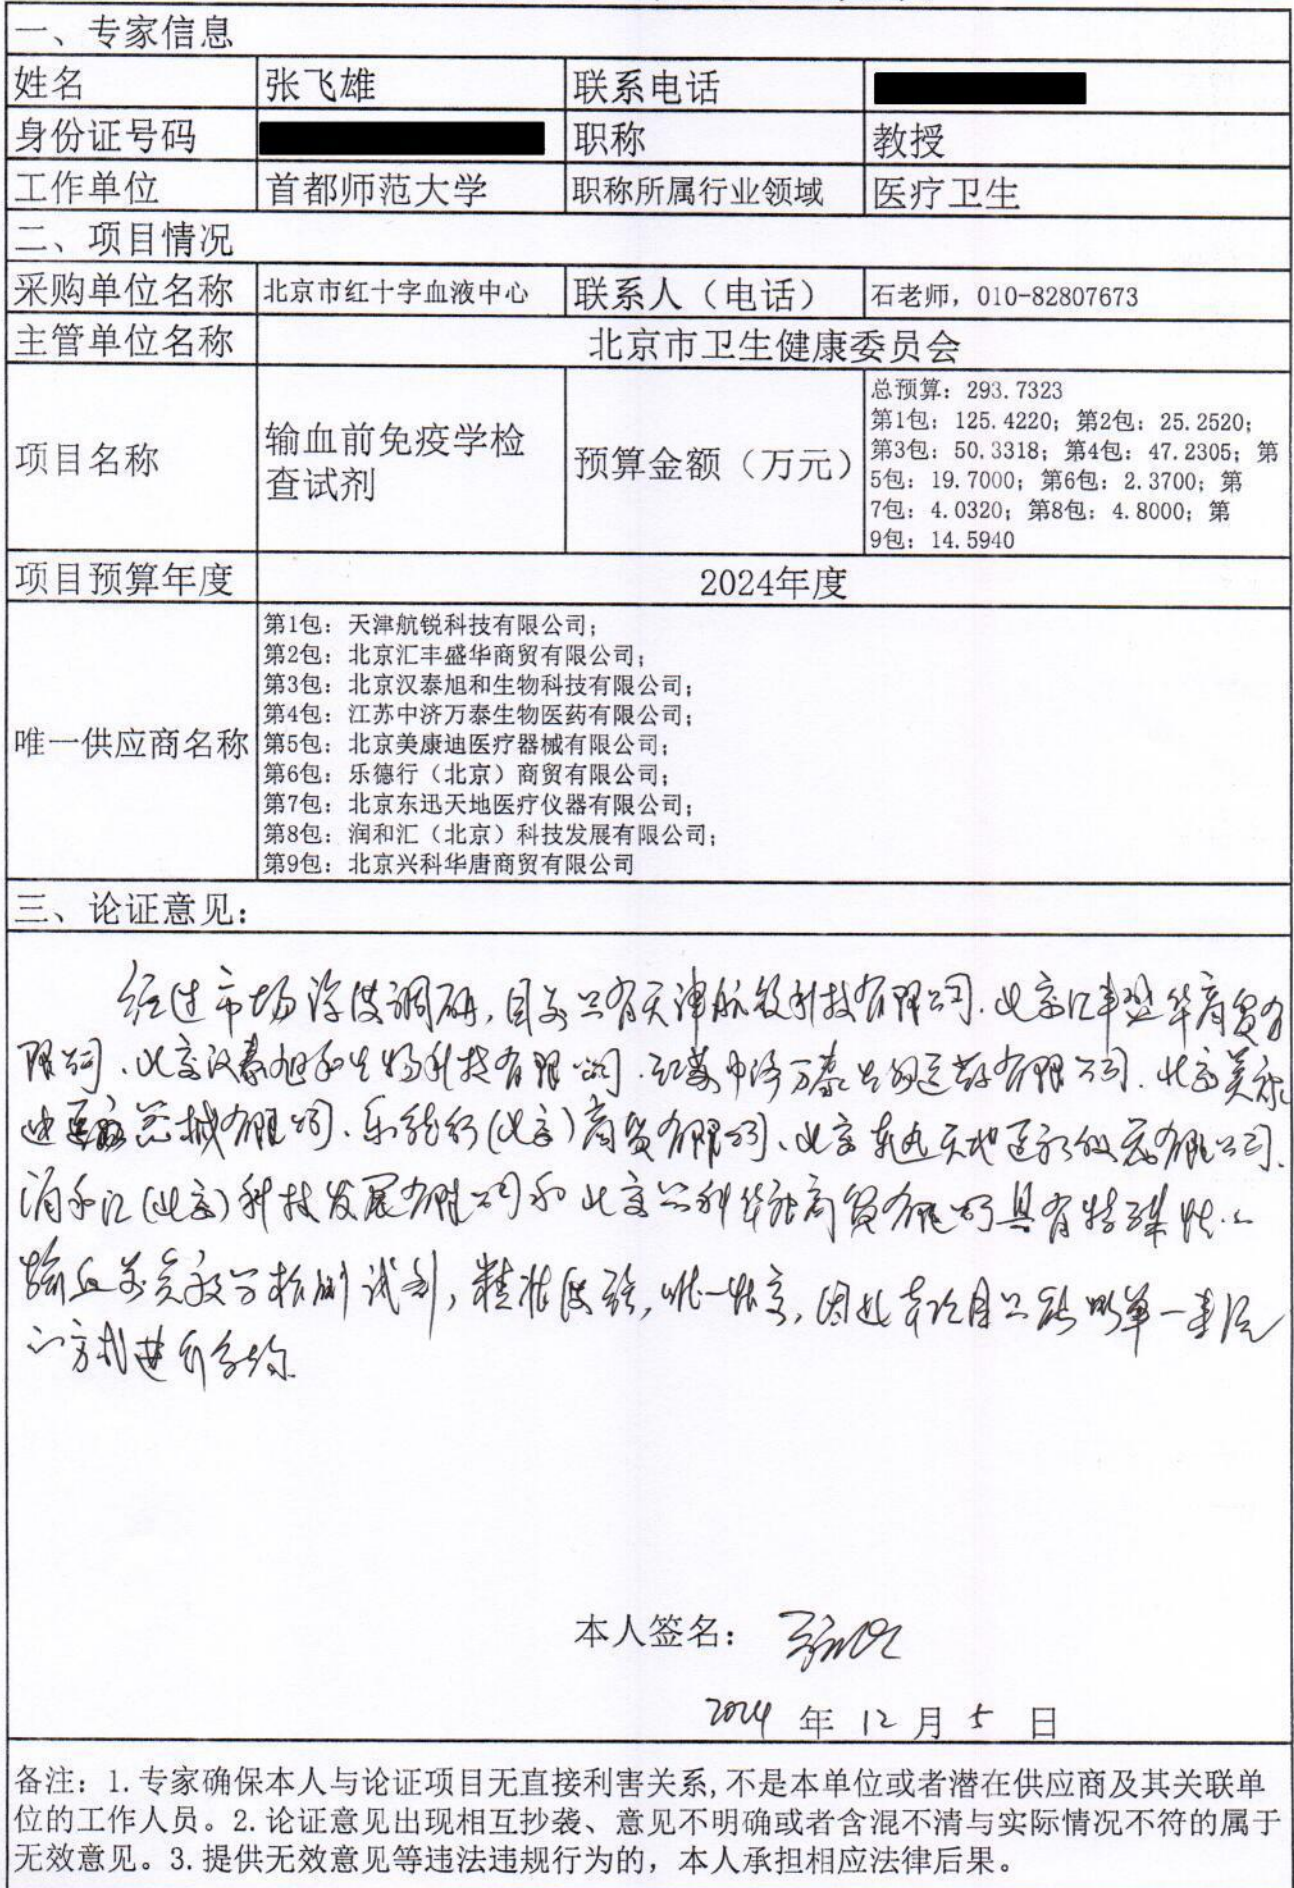 一、专家信息
姓名 张飞雄 联系电话
身份证号码 职称 教授
工作单位 首都师范大学 职称所属行业领域 医疗卫生
二、项目情况
采购单位名称 北京市红十字血液中心 联系人（电话） 石老师，010-82807673
主管单位名称 北京市卫生健康委员会
项目名称 输血前免疫学检
查试剂
预算金额（万元）
总预算：293.7323
第1包：125.4220；第2包：25.2520；
第3包：50.3318；第4包：47.2305；第
5包：19.7000；第6包：2.3700；第
7包：4.0320；第8包：4.8000；第
9包：14.5940
项目预算年度 2024年度
唯一供应商名称
第1包：天津航锐科技有限公司；
第2包：北京汇丰盛华商贸有限公司；
第3包：北京汉泰旭和生物科技有限公司；
第4包：江苏中济万泰生物医药有限公司；
第5包：北京美康迪医疗器械有限公司；
第6包：乐德行（北京）商贸有限公司；
第7包：北京东迅天地医疗仪器有限公司；
第8包：润和汇（北京）科技发展有限公司；
第9包：北京兴科华唐商贸有限公司
三、论证意见：
经过市场深度调研，目前只有天津航锐科技有限公司、北京汇丰盛华商贸有
限公司、北京汉泰旭和生物科技有限公司、江苏中济万泰生物医药有限公司、北京美康
迪医疗器械有限公司、乐德行（北京）商贸有限公司、北京东迅天地医疗仪器有限公司、
润和汇（北京）科技发展有限公司和北京兴科华唐商贸有限公司具有特殊性的
输血前免疫学检测试剂，精准度强，唯一性高，因此本项目只能以单一来源
的方式进行采购
本人签名：
2024 年 12 月 5 日
备注：1.专家确保本人与论证项目无直接利害关系,不是本单位或者潜在供应商及其关联单
位的工作人员。2.论证意见出现相互抄袭、意见不明确或者含混不清与实际情况不符的属于
无效意见。3.提供无效意见等违法违规行为的，本人承担相应法律后果。